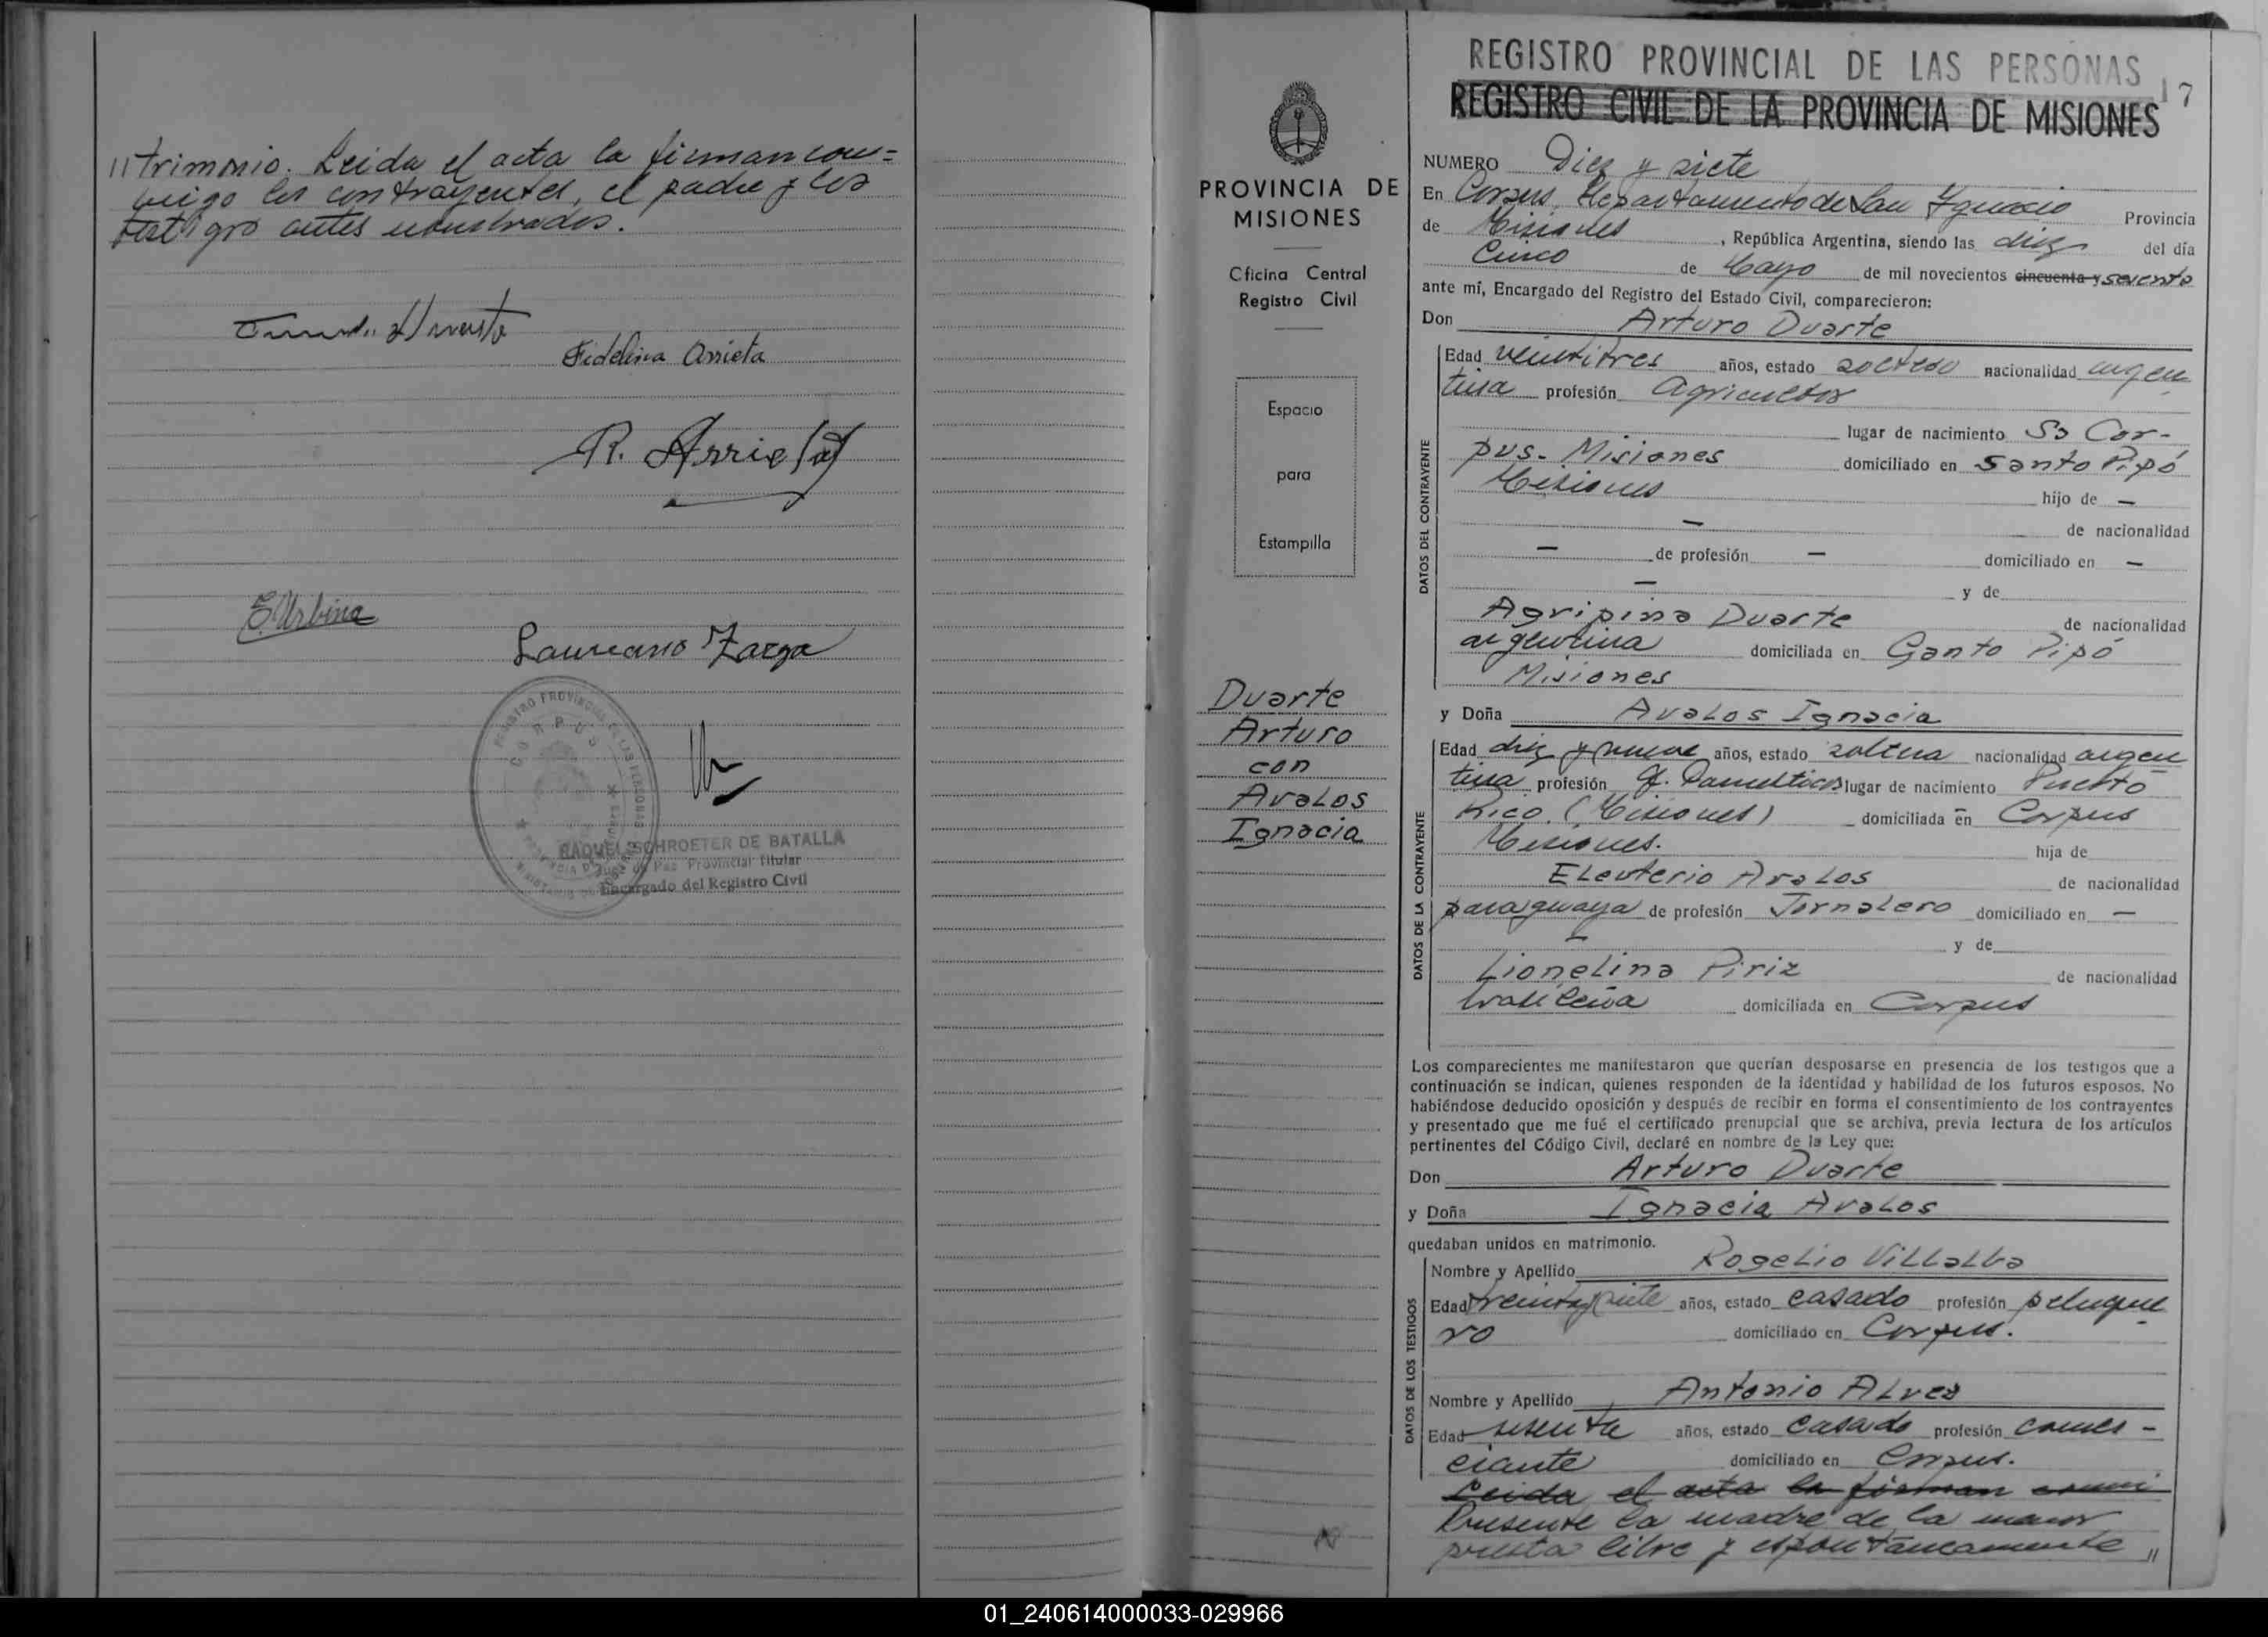 //trimonio. Leida el acta la firman con=
migo los contrayentes, el padre y los
testigos antes nombrados.
Fidelina Arrieta
R. Arrieta
E. Urbina
Laureano Zarza
CORPUS
RAQUEL SCHROETER DE BATALLA
Juez de Paz Provincial Titular
Encargado del Registro Civil
PROVINCIA DE
MISIONES
Oficina Central
Registro Civil
Espacio
para
Estampilla
Duarte
Arturo
con
Avalos
Ignacia
REGISTRO PROVINCIAL DE LAS PERSONAS
17
REGISTRO CIVIL DE LA PROVINCIA DE MISIONES
NUMERO Diez y siete
En Corpus, Departamento de San Ignacio Provincia
de Misiones, República Argentina, siendo las diez del día
Cinco de Mayo de mil novecientos cincuenta y setenta
ante mí, Encargado del Registro del Estado Civil, comparecieron:
Don Arturo Duarte
DATOS DEL CONTRAYENTE
Edad veintitres años, estado soltero nacionalidad argen
tina profesión Agricultor
lugar de nacimiento Cor-
pus- Misiones domiciliado en Santo Pipó
Misiones hijo de —
— de nacionalidad
— de profesión — domiciliado en —
— y de
Agripina Duarte de nacionalidad
argentina domiciliada en Santo Pipó
Misiones
y Doña Avalos Ignacia
DATOS DE LA CONTRAYENTE
Edad diez y nueve años, estado soltera nacionalidad argen
tina profesión Q. Domésticos lugar de nacimiento Puerto
Rico. (Misiones) domiciliada en Corpus
Misiones. hija de
Eleuterio Avalos de nacionalidad
paraguaya de profesión Jornalero domiciliado en —
— y de
Lionelina Piriz de nacionalidad
brasileña domiciliada en Corpus
Los comparecientes me manifestaron que querían desposarse en presencia de los testigos que a
continuación se indican, quienes responden de la identidad y habilidad de los futuros esposos. No
habiéndose deducido oposición y después de recibir en forma el consentimiento de los contrayentes
y presentado que me fué el certificado prenupcial que se archiva, previa lectura de los artículos
pertinentes del Código Civil, declaré en nombre de la Ley que:
Don Arturo Duarte
y Doña Ignacia Avalos
quedaban unidos en matrimonio.
DATOS DE LOS TESTIGOS
Nombre y Apellido Rogelio Villalba
Edad treinta y siete años, estado casado profesión peluque
ro domiciliado en Corpus.
Nombre y Apellido Antonio Alves
Edad sesenta años, estado casado profesión comer-
ciante domiciliado en Corpus.
Leida el acta la firman conmi
Presente la madre de la menor
presta libre y espontaneamente //
01_240614000033-029966